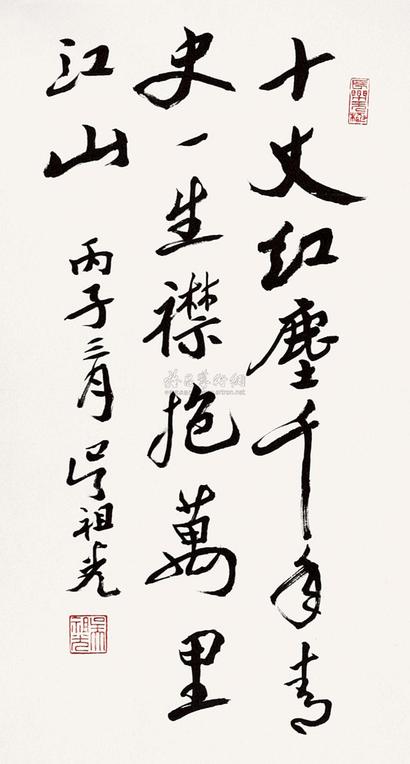 十丈红塵千年青
史一生襟抱萬里
江山
丙子三月 吴祖光
吴祖光